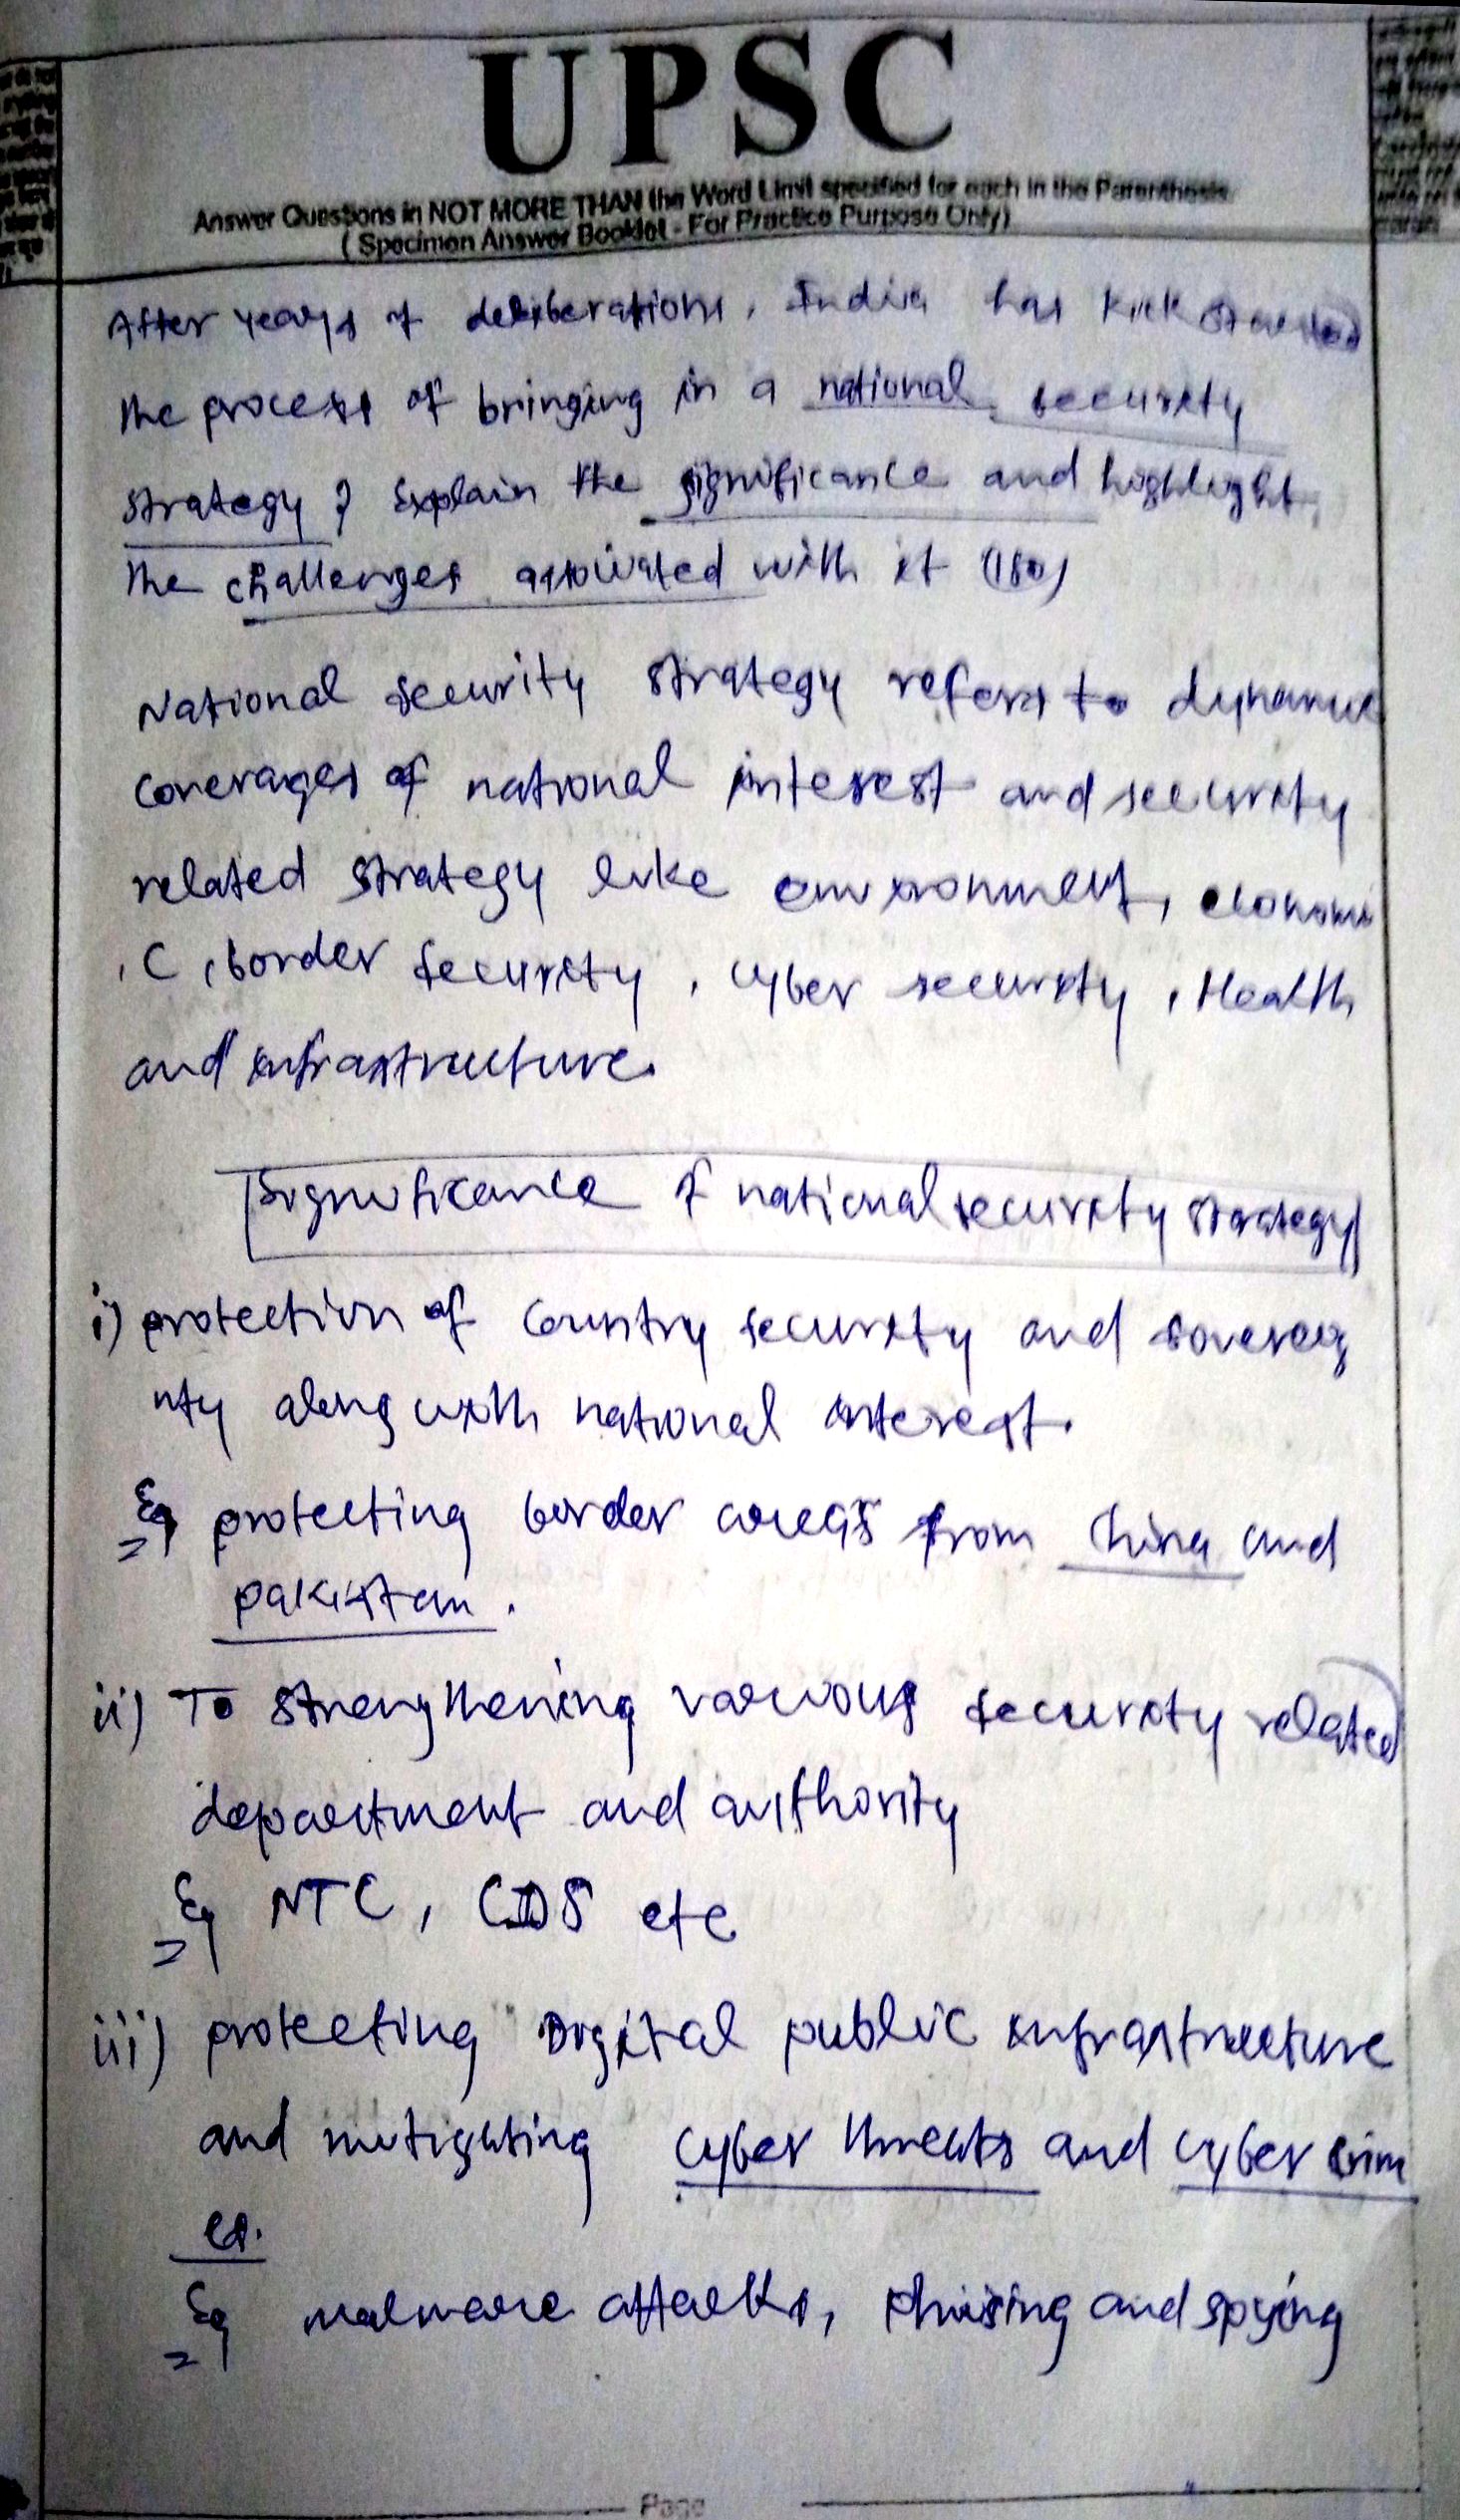 UPSC
Answer Questions in NOT MORE THAN the Word Limit specified for each in the Parenthesis.
( Specimen Answer Booklet - For Practice Purpose Only)
After years of deliberations, India has kick started
the process of bringing in a national security
strategy? Explain the significance and highlight
the challenges associated with it (150)
National security strategy refers to dynamic
coverages of national interest and security
related strategy like environment, economi
c, border security, cyber security, Health
and infrastructure.
Significance of national security strategy
i) protection of country security and sovereig
nty along with national interest.
Eg protecting border areas from China and
pakistan.
ii) To strengthening various security related
department and authority
Eg NTC, CDS etc
iii) protecting Digital public infrastructure
and mitigating cyber threats and cyber crim
es.
Eg malware attacks, phising and spying
Page